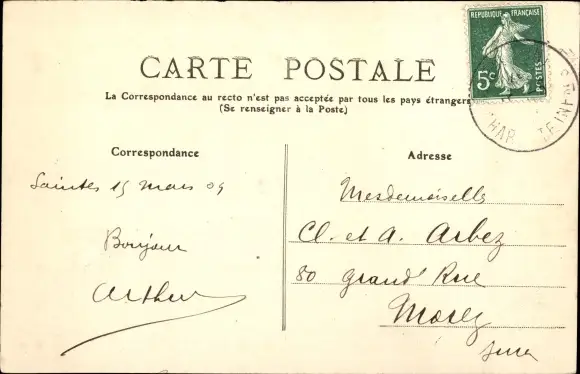 RÉPUBLIQUE FRANÇAISE
5c
POSTES
CARTE POSTALE
La Correspondance au recto n'est pas acceptée par tous les pays étrangers
(Se renseigner à la Poste)
Correspondance
Adresse
Saintes 15 mars 09
Bonjour
Arthur
Mesdemoiselles
Cl. et A. Arbez
80 Grand' Rue
Morez
Jura